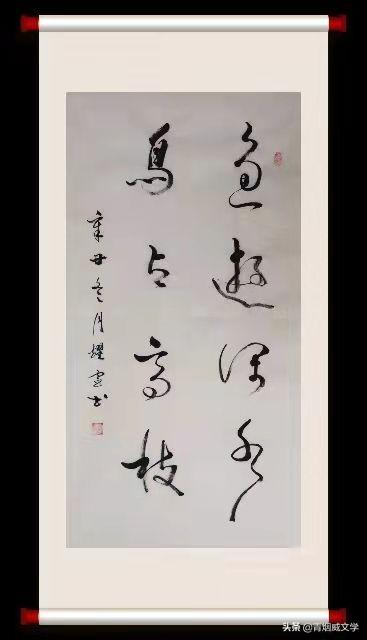 鱼遊深水
鸟占高枝
辛丑冬月耀云书
头条@青烟威文学